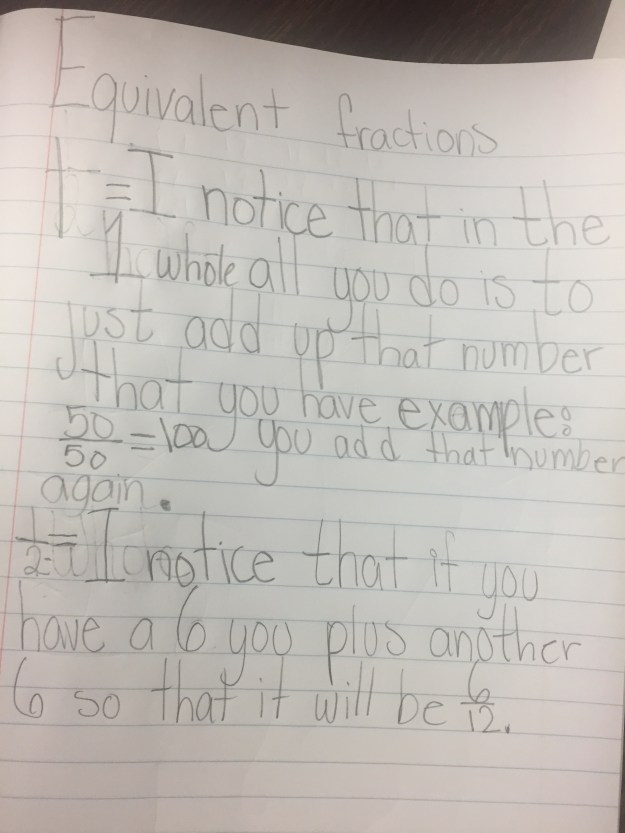 Equivalent fractions
1 = I notice that in the
1 whole all you do is to
just add up that number
that you have example:
50/50 = 100 you add that number
again.
1/2 = I notice that if you
have a 6 you plus another
6 so that it will be 6/12.